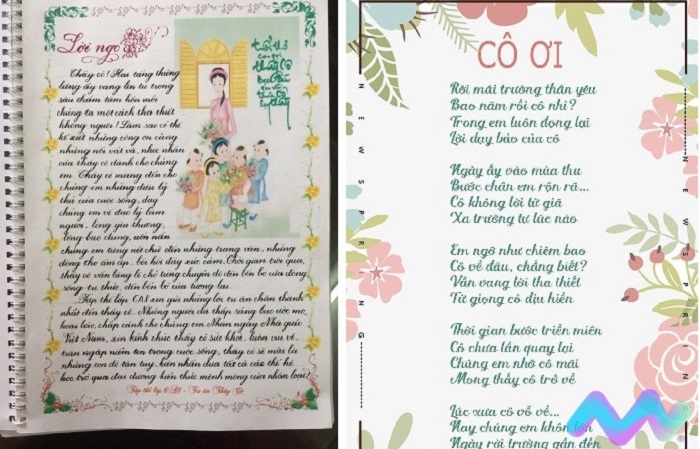 Lời ngỏ
Thầy cô! Hai tiếng thiêng
liêng ấy vang lên từ trong
sâu thẳm tâm hồn mỗi
chúng ta một cách tha thiết
không nguôi! Làm sao có thể
kể xiết những công ơn cùng
những nỗi vất vả, nhọc nhằn
của thầy cô dành cho chúng
em. Thầy cô mang đến cho
chúng em những điều lý
thú của cuộc sống, dạy
chúng em về đạo lý làm
người, lòng yêu thương,
lòng bao dung, uốn nắn
chúng em từng nét chữ đến những trang văn, những
dòng thơ ấm áp, bồi hồi đầy xúc cảm. Thời gian trôi qua,
thầy cô vẫn lặng lẽ chở từng chuyến đò đến bến bờ của dòng
sông tri thức, đến bến bờ của tương lai.
Tập thể lớp 6A8 em gửi những lời tri ân chân thành
nhất đến thầy cô. Những người đã thắp sáng bao ước mơ,
hoài bão, chắp cánh cho chúng em. Nhân ngày Nhà giáo
Việt Nam, xin kính chúc thầy cô sức khỏe, luôn vui vẻ,
tràn ngập niềm tin trong cuộc sống, thầy cô sẽ mãi là
những con đò tận tụy, kiên nhẫn đưa tất cả các thế hệ
học trò qua đại dương kiến thức mênh mông của nhân loại!
Tập thể lớp 6A8 - Tri ân Thầy Cô
CÔ ƠI
Rời mái trường thân yêu
Bao năm rồi cô nhỉ?
Trong em luôn đọng lại
Lời dạy bảo của cô
Ngày ấy vào mùa thu
Bước chân em rộn rã...
Cô không lời từ giã
Xa trường tự lúc nào
Em ngỡ như chiêm bao
Cô về đâu, chẳng biết?
Vẫn vang lời tha thiết
Từ giọng cô dịu hiền
Thời gian bước triền miên
Cô chưa lần quay lại
Chúng em nhớ cô mãi
Mong thấy cô trở về
Lúc xưa cô vỗ về...
Nay chúng em khôn lớn
Ngày rời trường gần đến
NEWSPRING
NEWSPRING